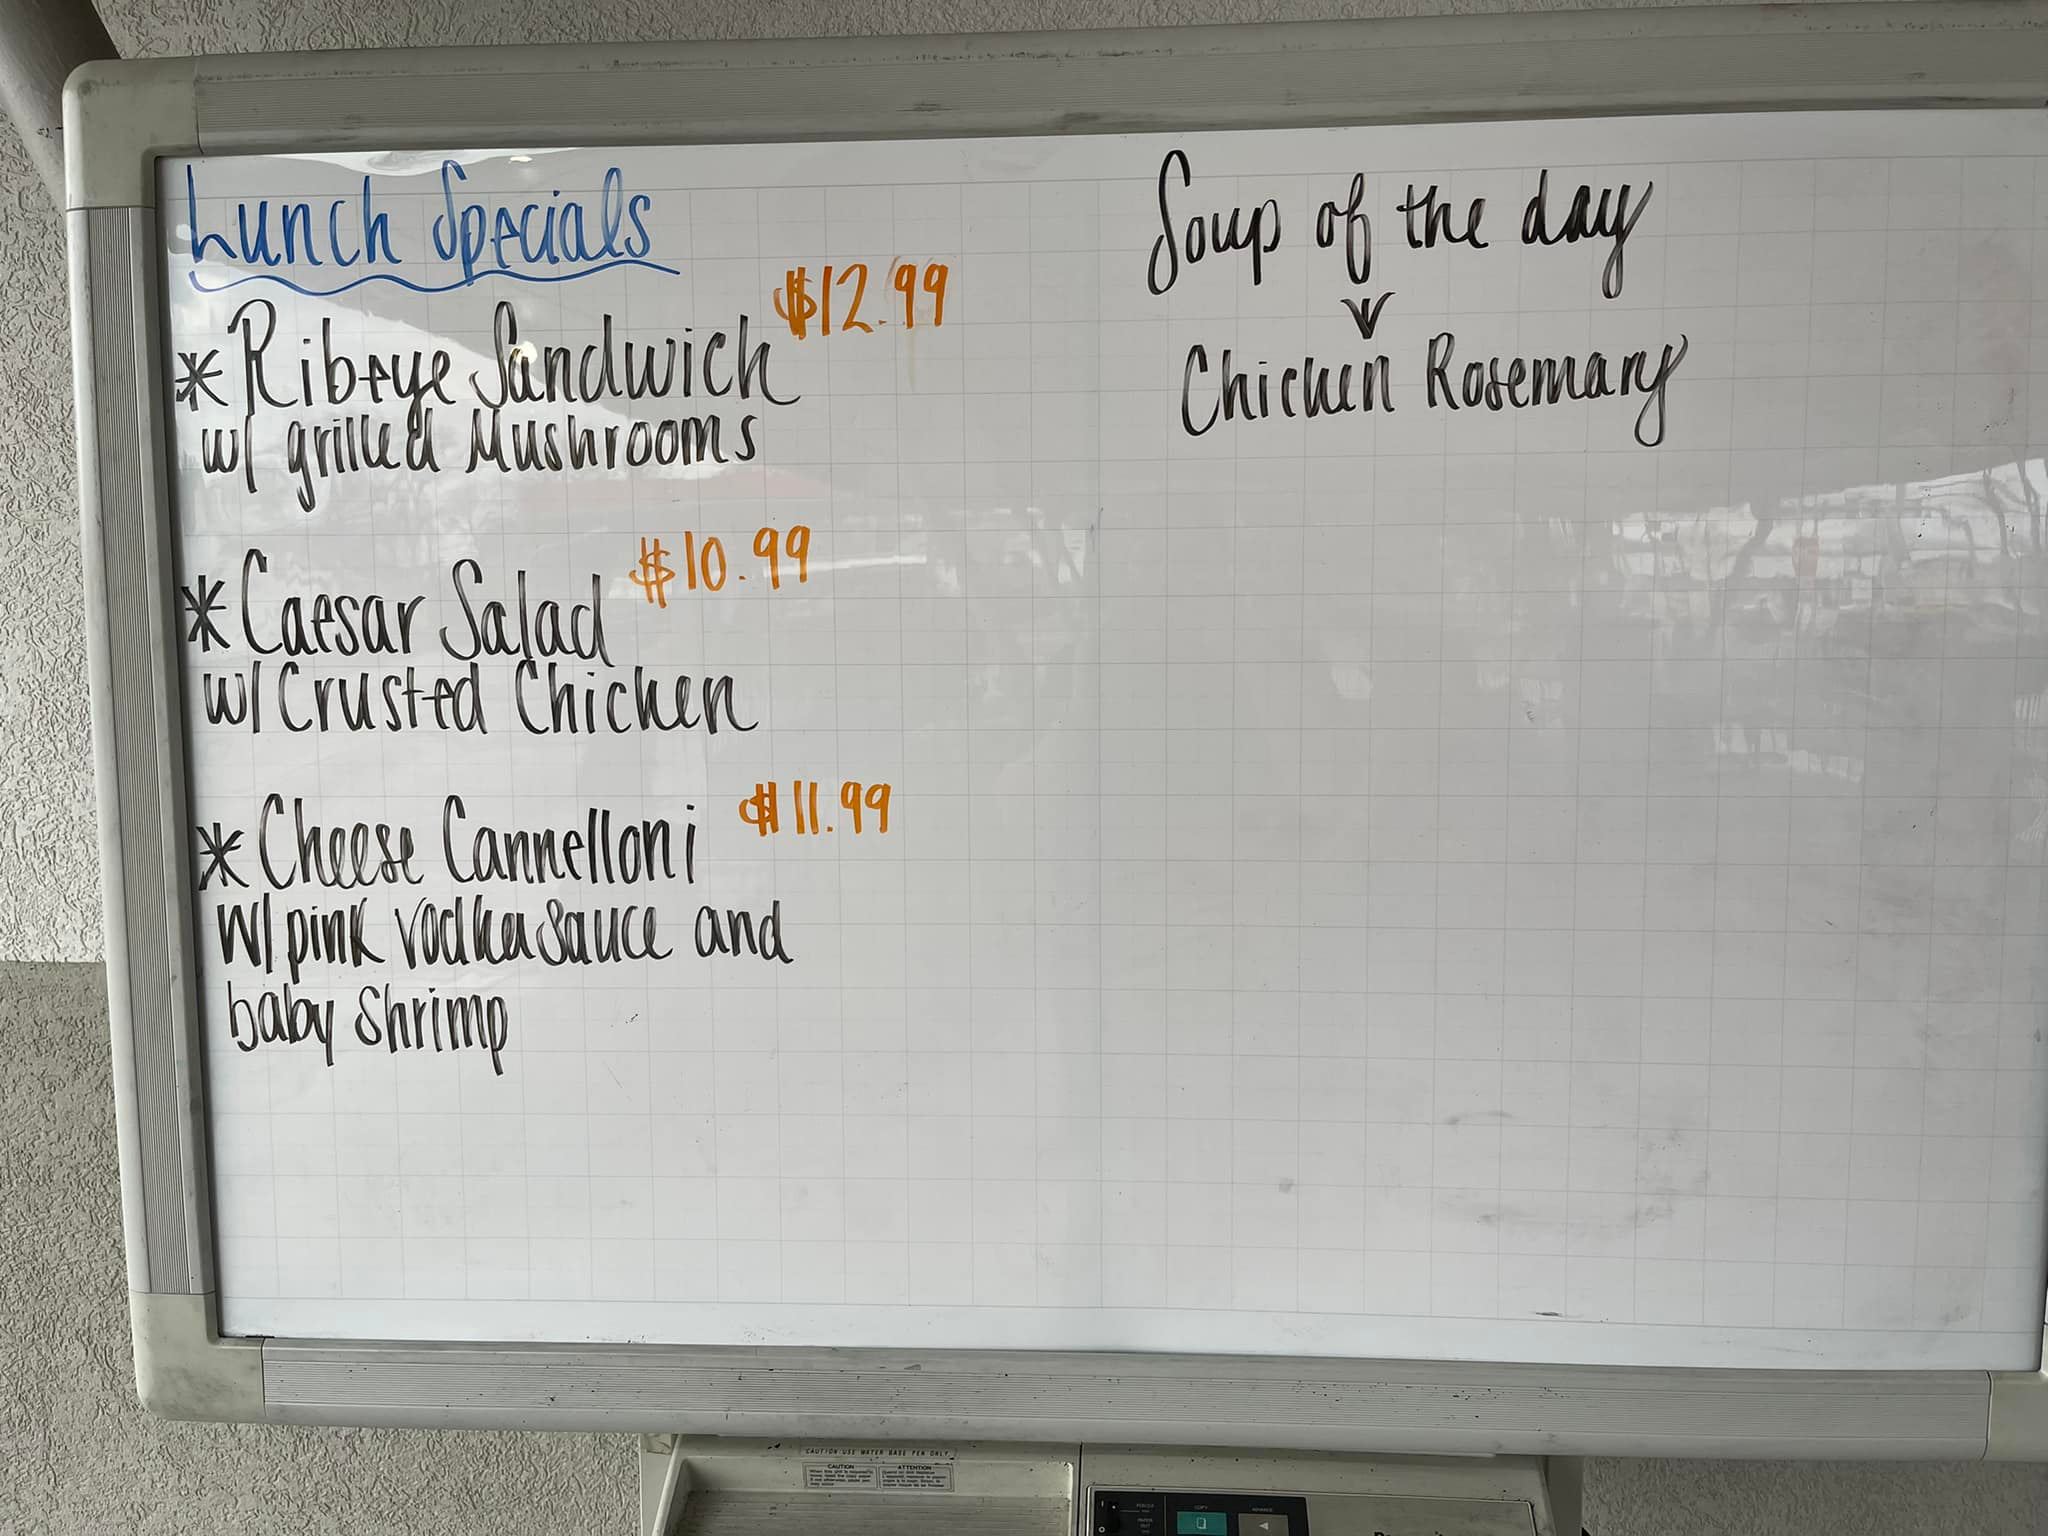 Lunch Specials
$12.99
* Ribeye Sandwich
w/ grilled Mushrooms
$10.99
* Caesar Salad
w/ Crusted Chicken
$11.99
* Cheese Cannelloni
w/ pink vodka sauce and
baby shrimp
Soup of the day
Chicken Rosemary
CAUTION USE WATER BASE PEN ONLY
CAUTION
ATTENTION
COPY
ADVANCE